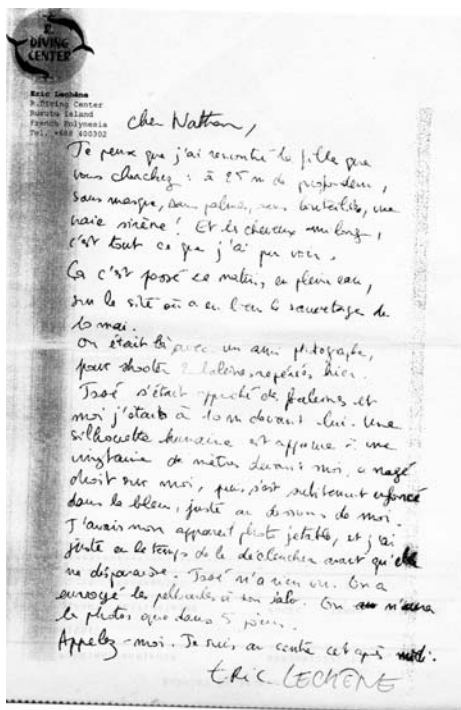 R.
DIVING
CENTER
Eric Lechêne
R.Diving Center
Rurutu Island
French Polynesia
Tel. +689 400302
Cher Nathan,
Je peux que j'ai rencontré la fille que
vous cherchez : à 25 m de profondeur,
sans masque, sans palmes, sans bouteilles, une
vraie sirène ! Et les cheveux longs,
c'est tout ce que j'ai pu voir.
Ça c'est passé ce matin, en pleine eau,
sur le site où a eu lieu le sauvetage de
10 mai.
On était là avec un ami photographe,
pour shooter 2 baleines repérées hier.
s'était approché des baleines et
moi j'étais à 10 m devant lui. Une
silhouette humaine est apparue à une
vingtaine de mètres devant moi, a nagé
droit sur moi, puis, s'est subitement enfoncé
dans le bleu, juste au dessous de moi.
J'avais mon appareil photo jetable, et j'ai
juste eu le temps de le déclencher avant qu'elle
ne disparaisse. n'a rien vu. On a
envoyé les pellicules à son labo. On n'aura
les photos que dans 5 jours.
Appelez-moi. Je suis au centre cet après midi.
ERIC LECHÊNE